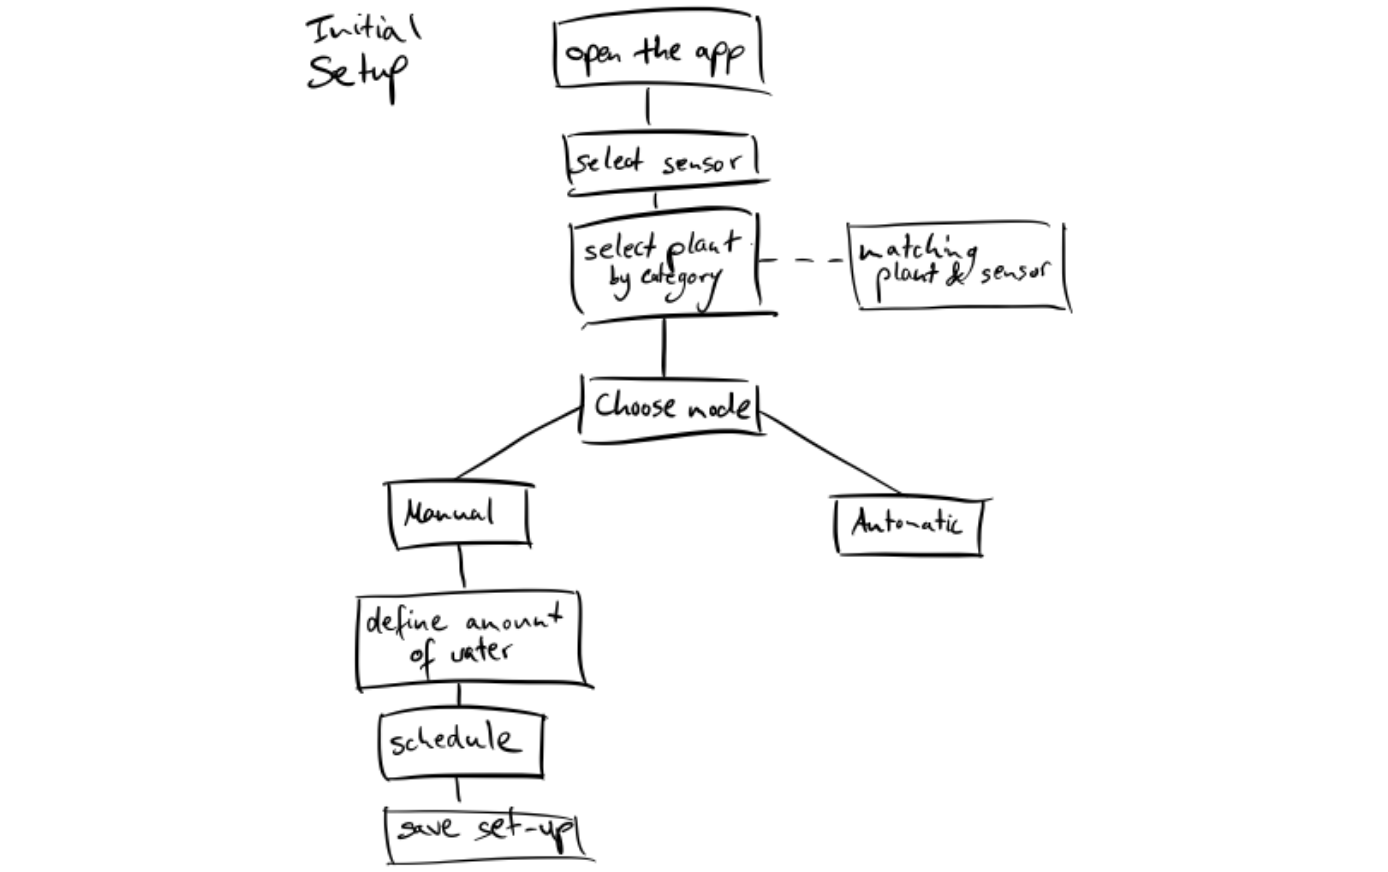 Initial
Setup
open the app
select sensor
select plant
by category
matching
plant & sensor
Choose mode
Manual
Automatic
define amount
of water
schedule
save set-up